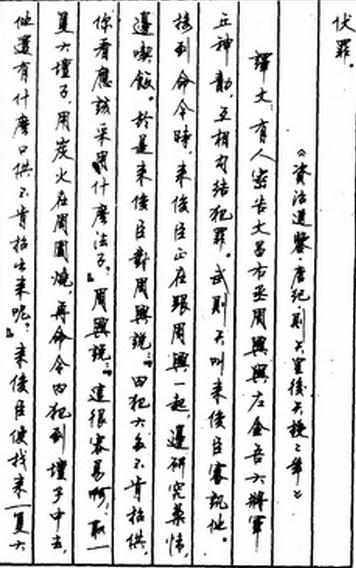 伏罪。
《资治通鑒·唐纪则天皇後天授二年》
譯文：有人密告文昌右丞周興與左金吾大將軍
丘神勣，互相勾结犯罪。武則天叫来俊臣審訊他。
接到命令時，来俊臣正在跟周興一起，邊研究案情，
邊喫飯。於是来俊臣對周興説：“囚犯大多不肯招供，
你看應該采用什麽法子？”周興説：“這很容易啊！取一
隻大壇子，用炭火在周圍燒，再命令囚犯到壇子中去，
他還有什麽口供不肯招出来呢？”来俊臣便找来一隻大